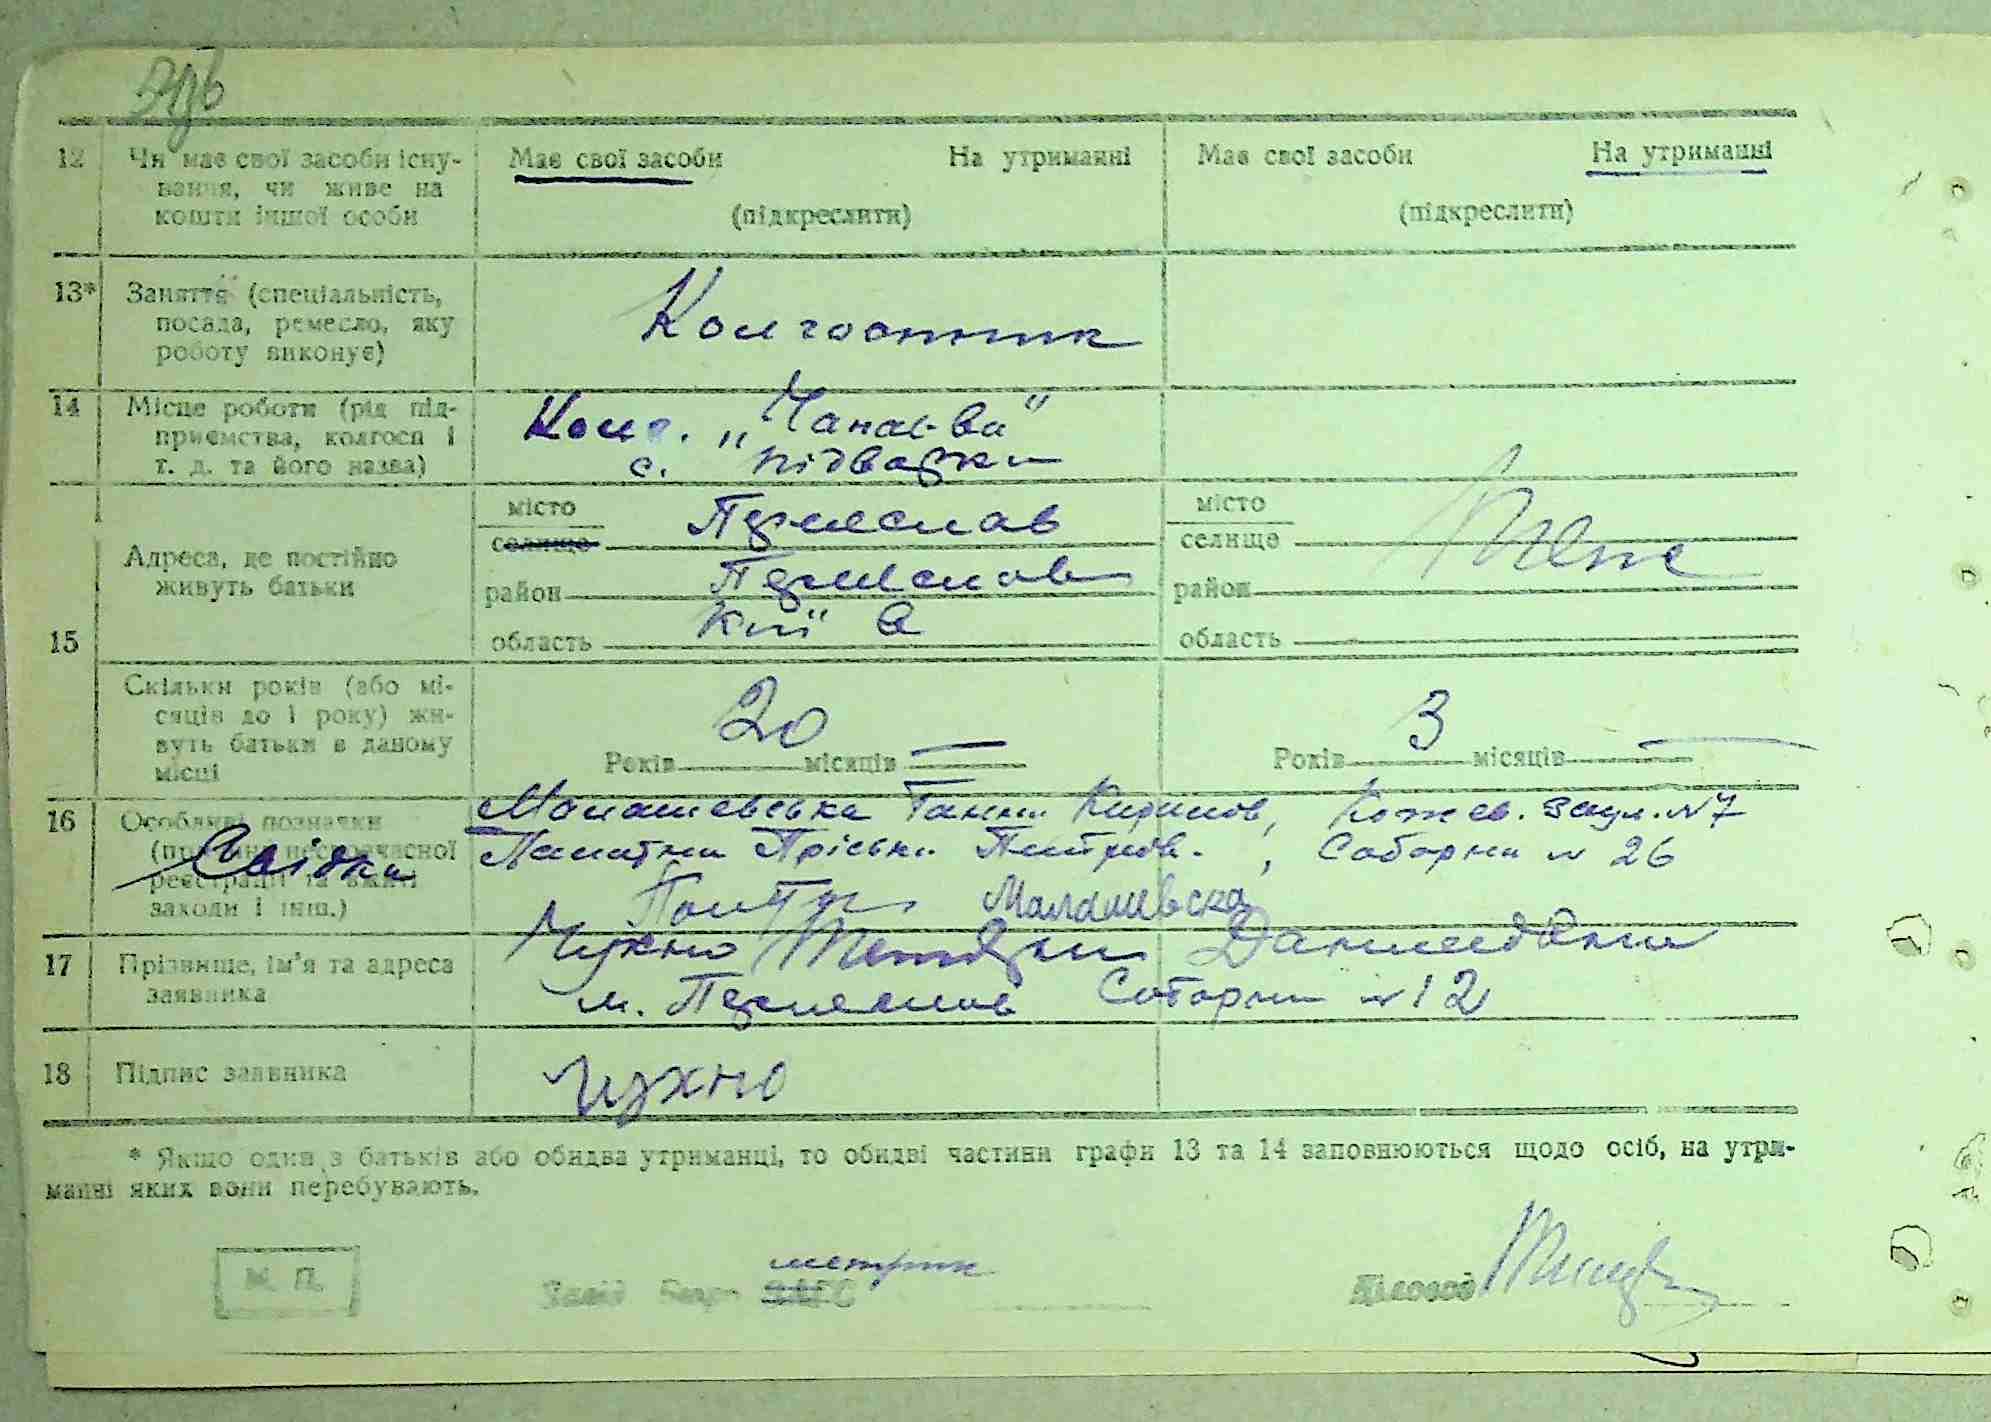 12 Чи має свої засоби існу- Має свої засоби На утриманні Має свої засоби На утриманні
вання, чи живе на
кошти іншої особи (підкреслити) (підкреслити)
13* Заняття (спеціальність,
посада, ремесло, яку Колгоспник
роботу виконує)
14 Місце роботи (рід під- Колг. „Чапаєва"
приємства, колгосп і
т. д. та його назва) с. Підварки
місто Переяслав місто
селище селище
Адреса, де постійно
живуть батьки район Переяслав район
15 область Київ область
Скільки років (або мі-
сяців до 1 року) жи-
вуть батьки в даному
місці Років 20 місяців Років 3 місяців
16 Особливі позначки Малашевська Ганна Кирилов, Кожев. завул. № 7
(причина несвоєчасної Пріська , Соборна № 26
Свідки
реєстрації та вжиті
заходи і інш.) Малашевска
17 Прізвище, ім'я та адреса Чухно Данилівна
заявника м. Переяслав Соборна № 12
18 Підпис заявника Чухно
* Якщо один з батьків або обидва утриманці, то обидві частини графи 13 та 14 заповнюються щодо осіб, на утри-
манні яких вони перебувають.
метрик
М. П. Завід Бюро ЗАГС Діловод